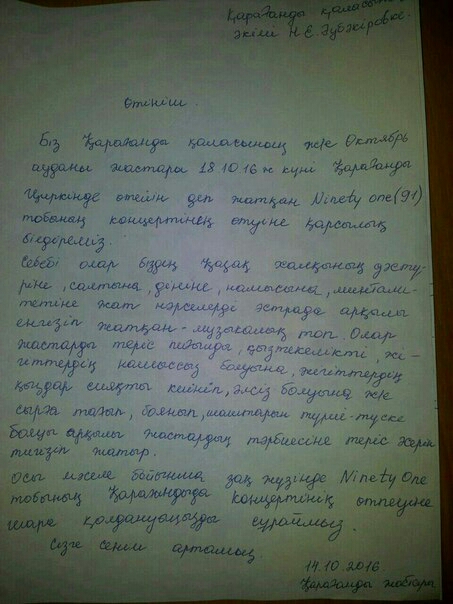 Қарағанды қаласының
әкімі Н.Е. Әубәкіровке.
Өтініш.
Біз Қарағанды қаласының және Октябрь
ауданы жастары 18.10.16 ж күні Қарағанды
Циркінде өтейін деп жатқан Ninety one (91)
тобының концертінің өтуіне қарсылық
білдіреміз.
Себебі олар біздің Қазақ халқының дәстү-
ріне, салтына, дініне, намысына, минтали-
тетіне жат нәрселерді эстрада арқылы
енгізіп жатқан - музыкалық топ. Олар
жастарды теріс пиғылды, қызтекелікті, жі-
гіттердің намыссыз болуына, жігіттердің
қыздар сияқты киініп, әлсіз болуына және
сырға тағып, боянып, шаштарын түрлі-түске
бояуы арқылы жастардың тәрбиесіне теріс әсерін
тигізіп жатыр.
Осы мәселе бойынша заң жүзінде Ninety One
тобының Қарағандыда концертінің өтпеуіне
шара қолдануыңызды сұраймыз.
Сізге сенім артамыз.
14.10.2016
Қарағанды жастары